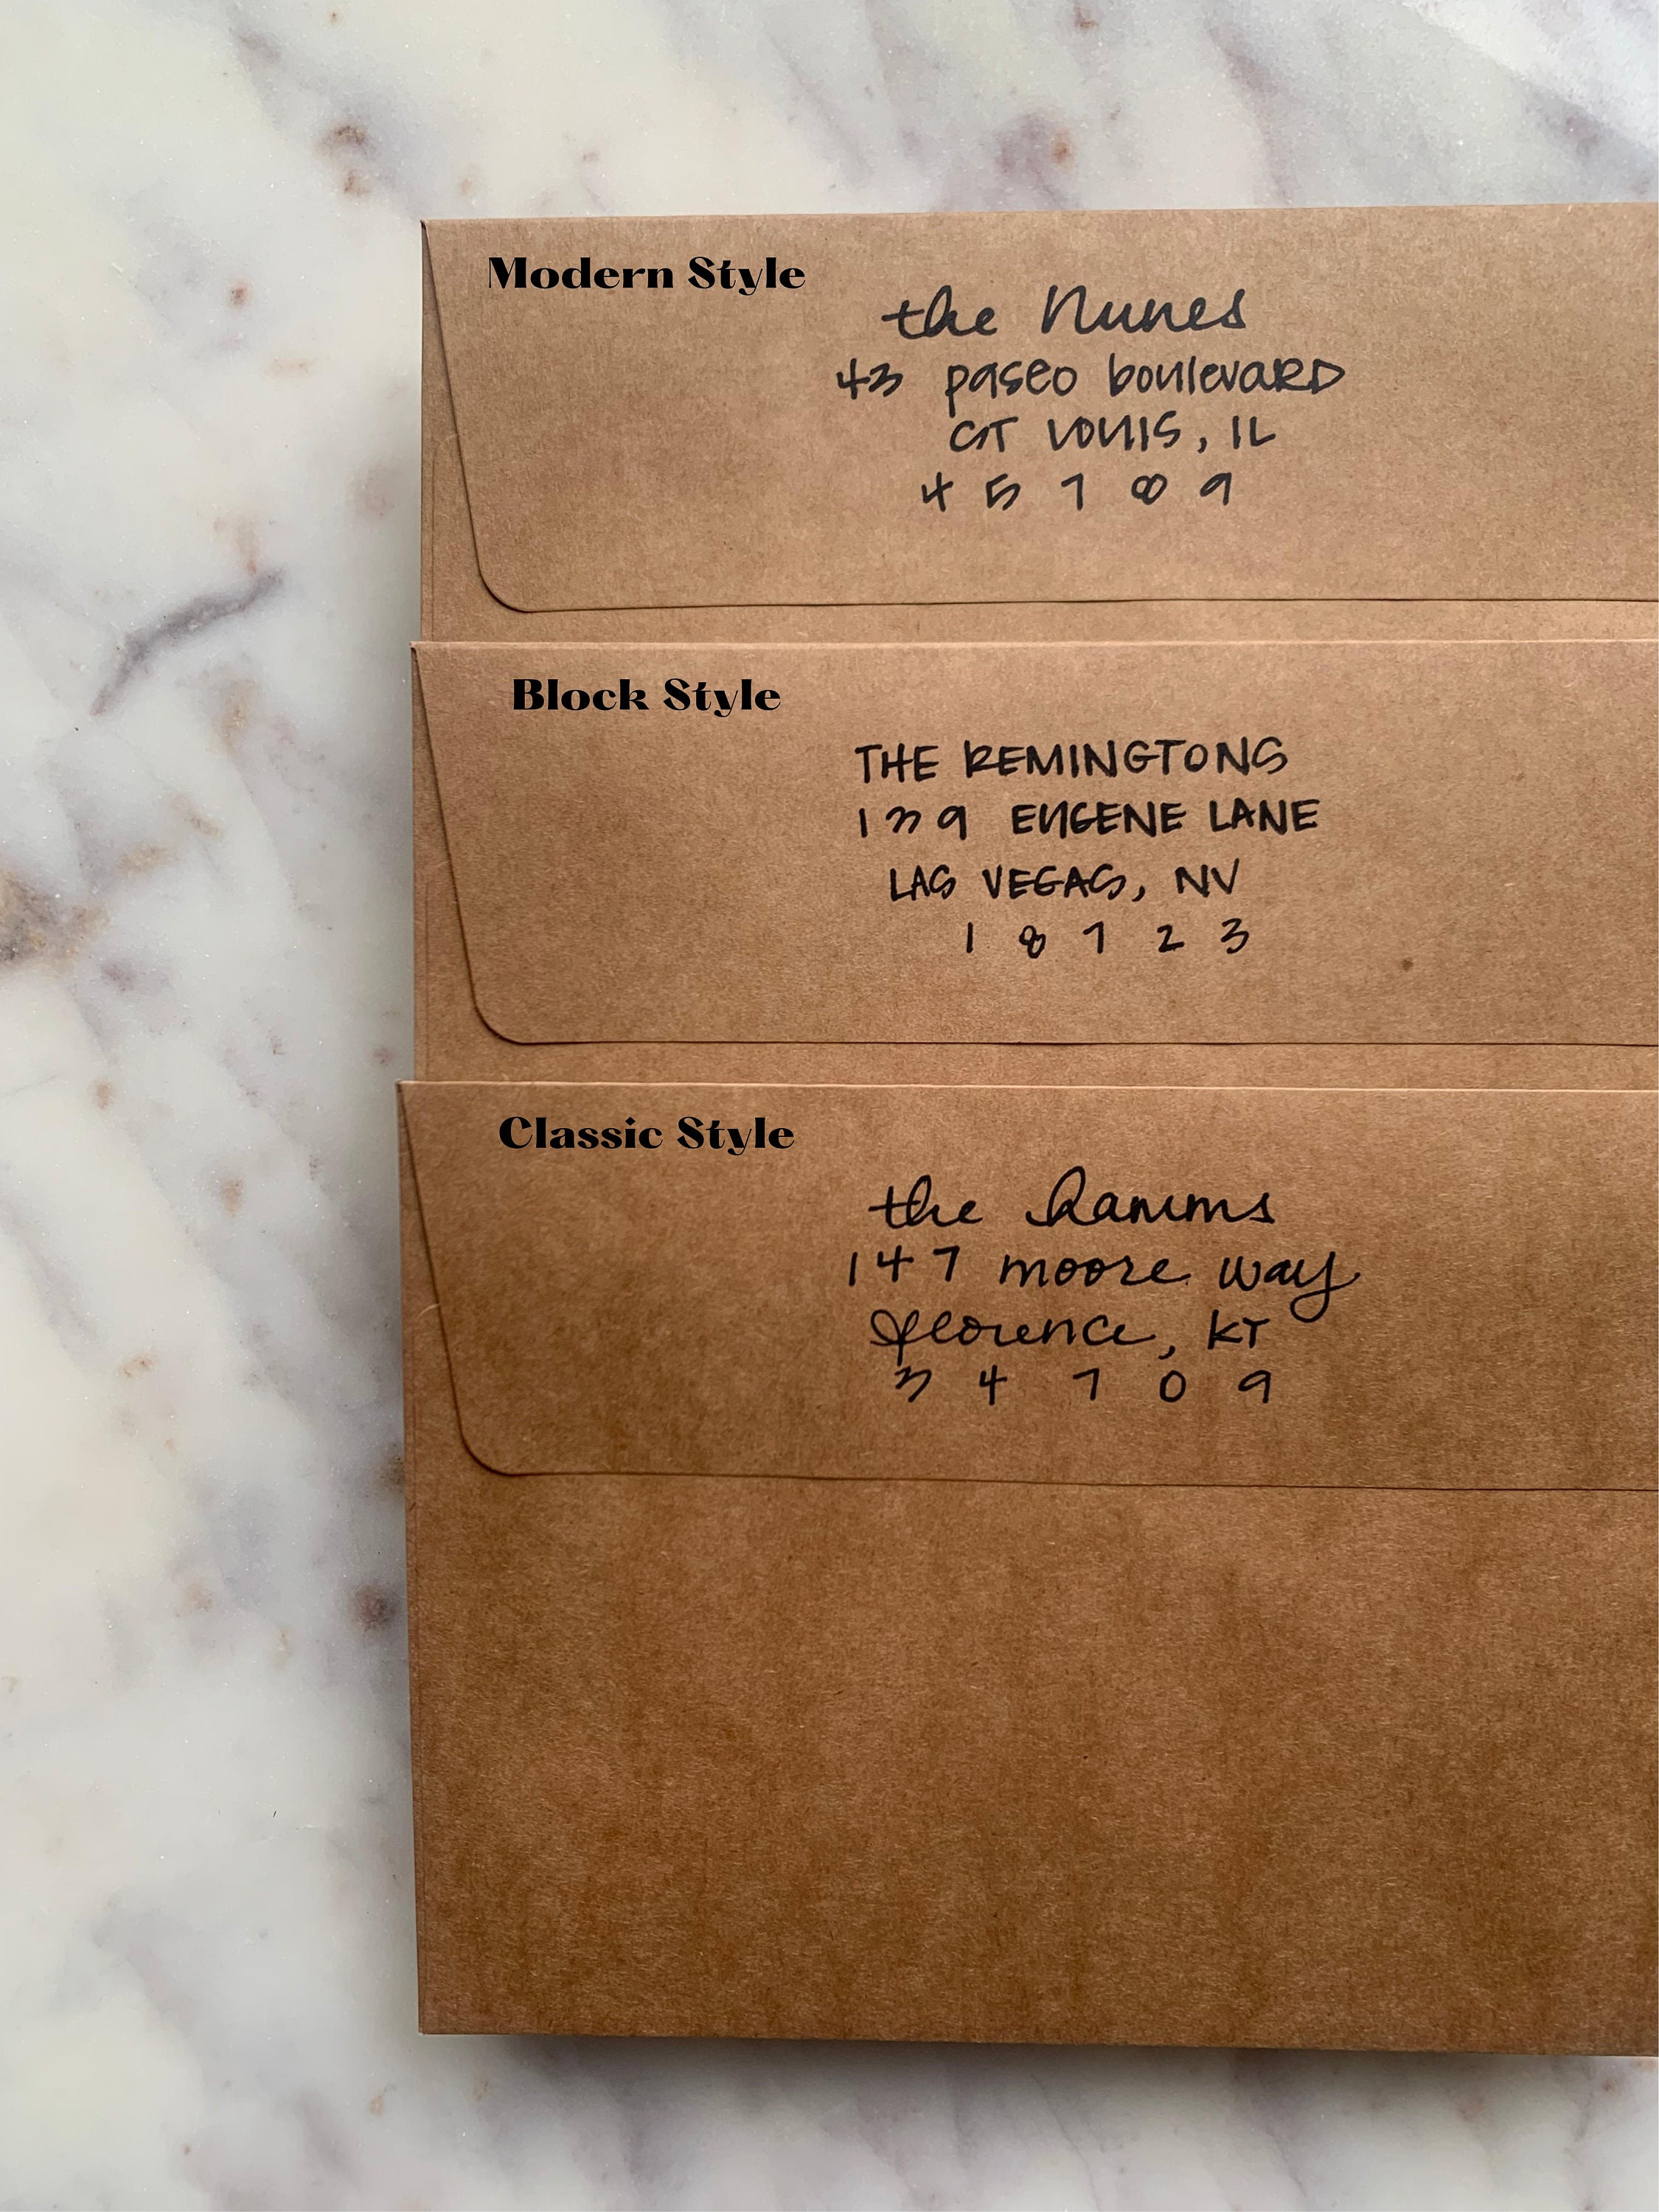 Modern Style
the Nunes
43 paseo boulevard
ST LOUIS, IL
4 5 7 8 9
Block Style
THE REMINGTONS
139 EUGENE LANE
LAS VEGAS, NV
1 8 7 2 3
Classic Style
the Ramms
147 moore way
florence, KT
3 4 7 0 9